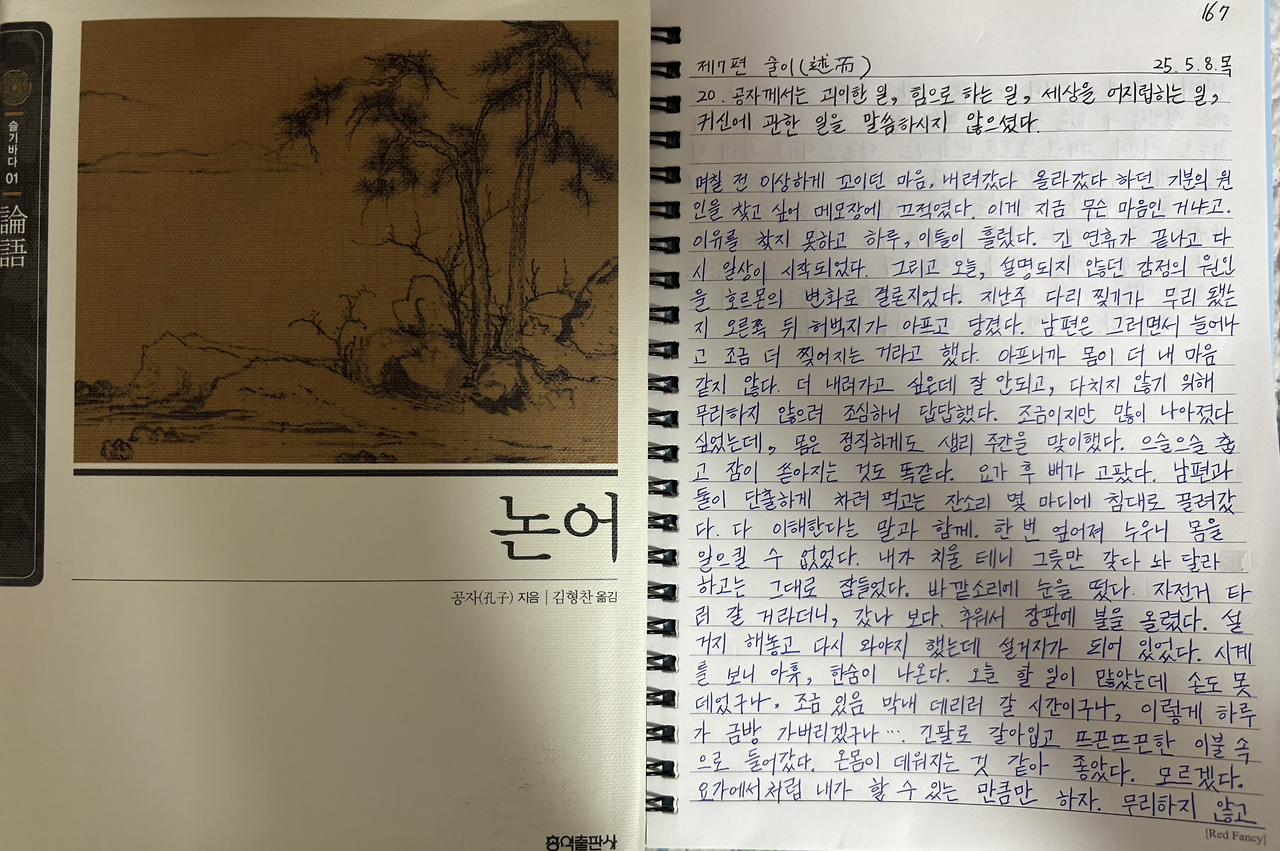 슬기바다 01
論語
논어
공자(孔子) 지음 | 김형찬 옮김
홍익출판사
167
제7편 술이(述而) 25.5.8.목
20. 공자께서는 괴이한 일, 힘으로 하는 일, 세상을 어지럽히는 일,
귀신에 관한 일을 말씀하시지 않으셨다.
며칠 전 이상하게 꼬이던 마음, 내려갔다 올라갔다 하던 기분의 원
인을 찾고 싶어 메모장에 끄적였다. 이게 지금 무슨 마음인 거냐고.
이유를 찾지 못하고 하루, 이틀이 흘렀다. 긴 연휴가 끝나고 다
시 일상이 시작되었다. 그리고 오늘, 설명되지 않던 감정의 원인
을 호르몬의 변화로 결론지었다. 지난주 다리 찢기가 무리 됐는
지 오른쪽 뒤 허벅지가 아프고 당겼다. 남편은 그러면서 늘어나
고 조금 더 찢어지는 거라고 했다. 아프니까 몸이 더 내 마음
같지 않다. 더 내려가고 싶은데 잘 안되고, 다치지 않기 위해
무리하지 않으려 조심하니 답답했다. 조금이지만 많이 나아졌다
싶었는데, 몸은 정직하게도 생리 주간을 맞이했다. 으슬으슬 춥
고 잠이 쏟아지는 것도 똑같다. 요가 후 배가 고팠다. 남편과
둘이 단출하게 차려 먹고는 잔소리 몇 마디에 침대로 끌려갔
다. 다 이해한다는 말과 함께. 한 번 엎어져 누우니 몸을
일으킬 수 없었다. 내가 치울 테니 그릇만 갖다 놔 달라
하고는 그대로 잠들었다. 바깥소리에 눈을 떴다. 자전거 타
러 갈 거라더니, 갔나 보다. 추워서 장판에 불을 올렸다. 설
거지 해놓고 다시 와야지 했는데 설거지가 되어 있었다. 시계
를 보니 아휴, 한숨이 나온다. 오늘 할 일이 많았는데 손도 못
데었구나. 조금 있음 막내 데리러 갈 시간이구나, 이렇게 하루
가 금방 가버리겠구나…. 긴팔로 갈아입고 뜨끈뜨끈한 이불 속
으로 들어갔다. 온몸이 데워지는 것 같아 좋았다. 모르겠다.
요가에서처럼 내가 할 수 있는 만큼만 하자. 무리하지 않고
[Red Fancy]